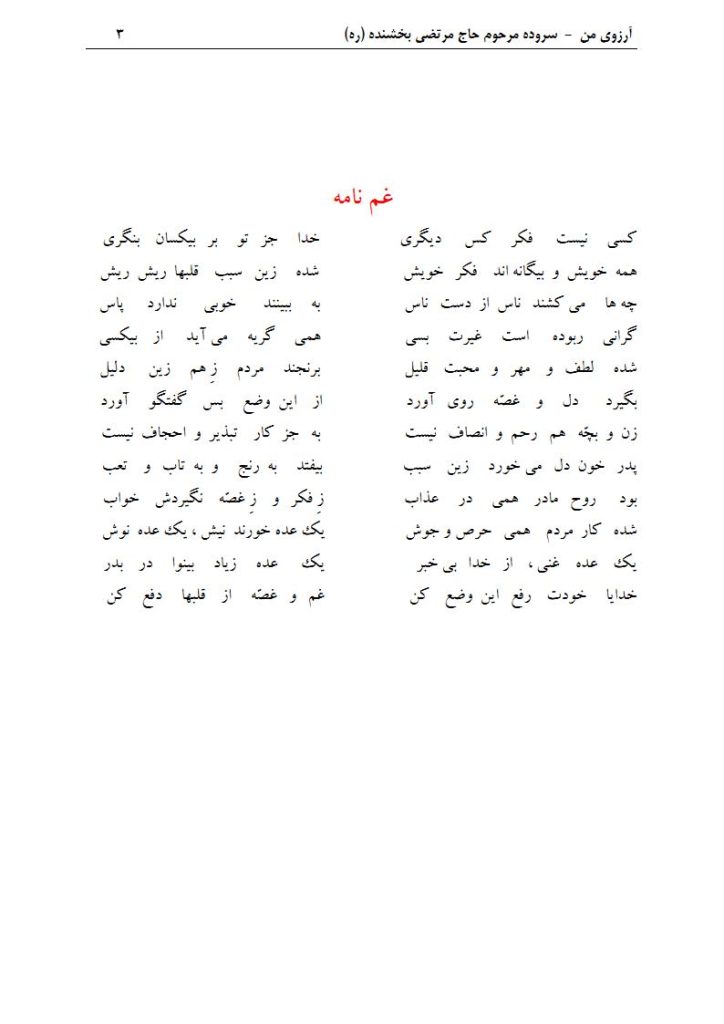 آرزوی من - سروده مرحوم حاج مرتضی بخشنده (ره) ۳
غم نامه
کسی نیست فکر کس دیگری خدا جز تو بر بیکسان بنگری
همه خویش و بیگانه اند فکر خویش شده زین سبب قلبها ریش ریش
چه ها می کشند ناس از دست ناس به ببینند خوبی ندارد پاس
گرانی ربوده است غیرت بسی همی گریه می آید از بیکسی
شده لطف و مهر و محبت قلیل برنجند مردم زِ هم زین دلیل
بگیرد دل و غصّه روی آورد از این وضع بس گفتگو آورد
زن و بچّه هم رحم و انصاف نیست به جز کار تبذیر و احجاف نیست
پدر خون دل می خورد زین سبب بیفتد به رنج و به تاب و تعب
بود روح مادر همی در عذاب زِ فکر و زِ غصّه نگیردش خواب
شده کار مردم همی حرص و جوش یک عده خورند نیش ، یک عده نوش
یک عده غنی ، از خدا بی خبر یک عده زیاد بینوا در بدر
خدایا خودت رفع این وضع کن غم و غصّه از قلبها دفع کن